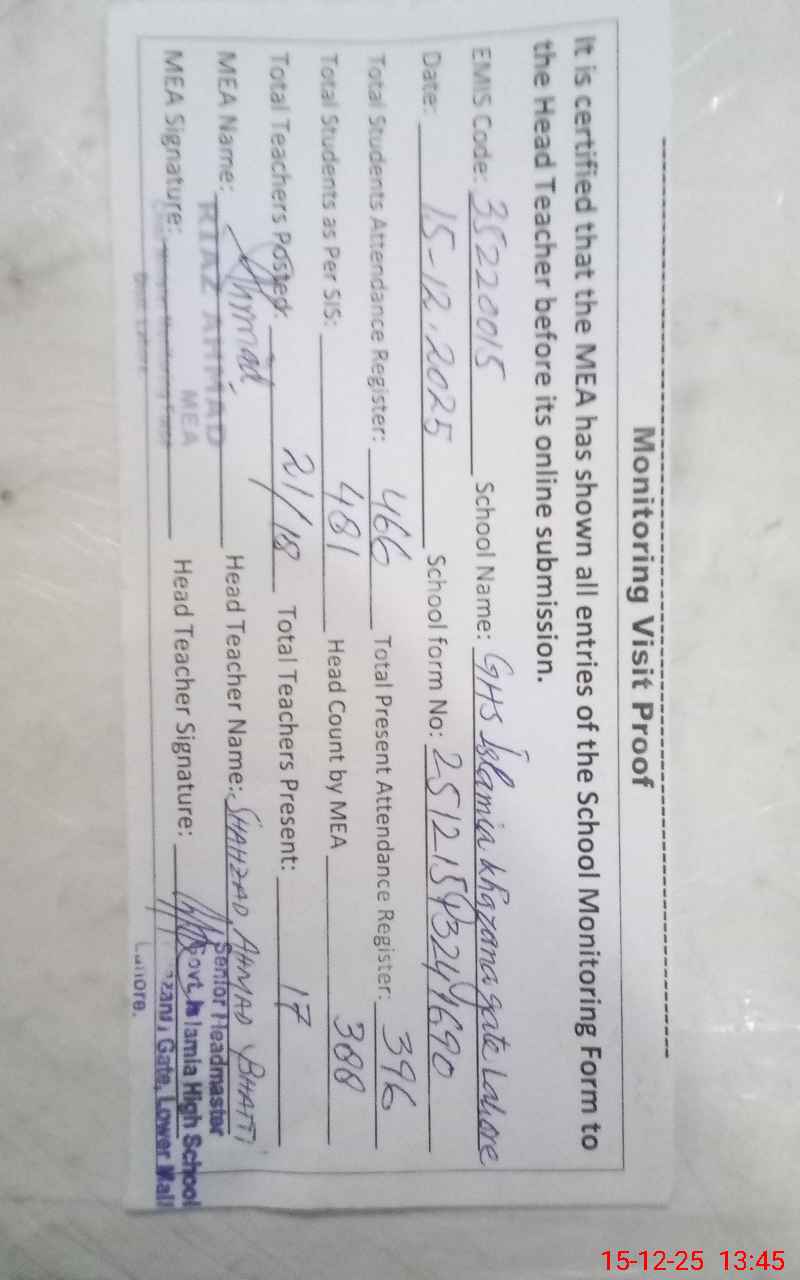 Monitoring Visit Proof
It is certified that the MEA has shown all entries of the School Monitoring Form to
the Head Teacher before its online submission.
EMIS Code: 35220015 School Name: GHS Islamia khazana gate Lahore
Date: 15-12-2025 School form No:
Total Students Attendance Register: 466 Total Present Attendance Register: 396
Total Students as Per SIS: 481 Head Count by MEA 388
Total Teachers Posted: 21/18 Total Teachers Present: 17
MEA Name: Head Teacher Name: SHAHZAD AHMAD BHATTI
MEA Signature: Head Teacher Signature:
RIAZ AHMAD
MEA
Senior Headmaster
Govt. Islamia High School
Gate, Lower Mall
Lahore.
15-12-25 13:45